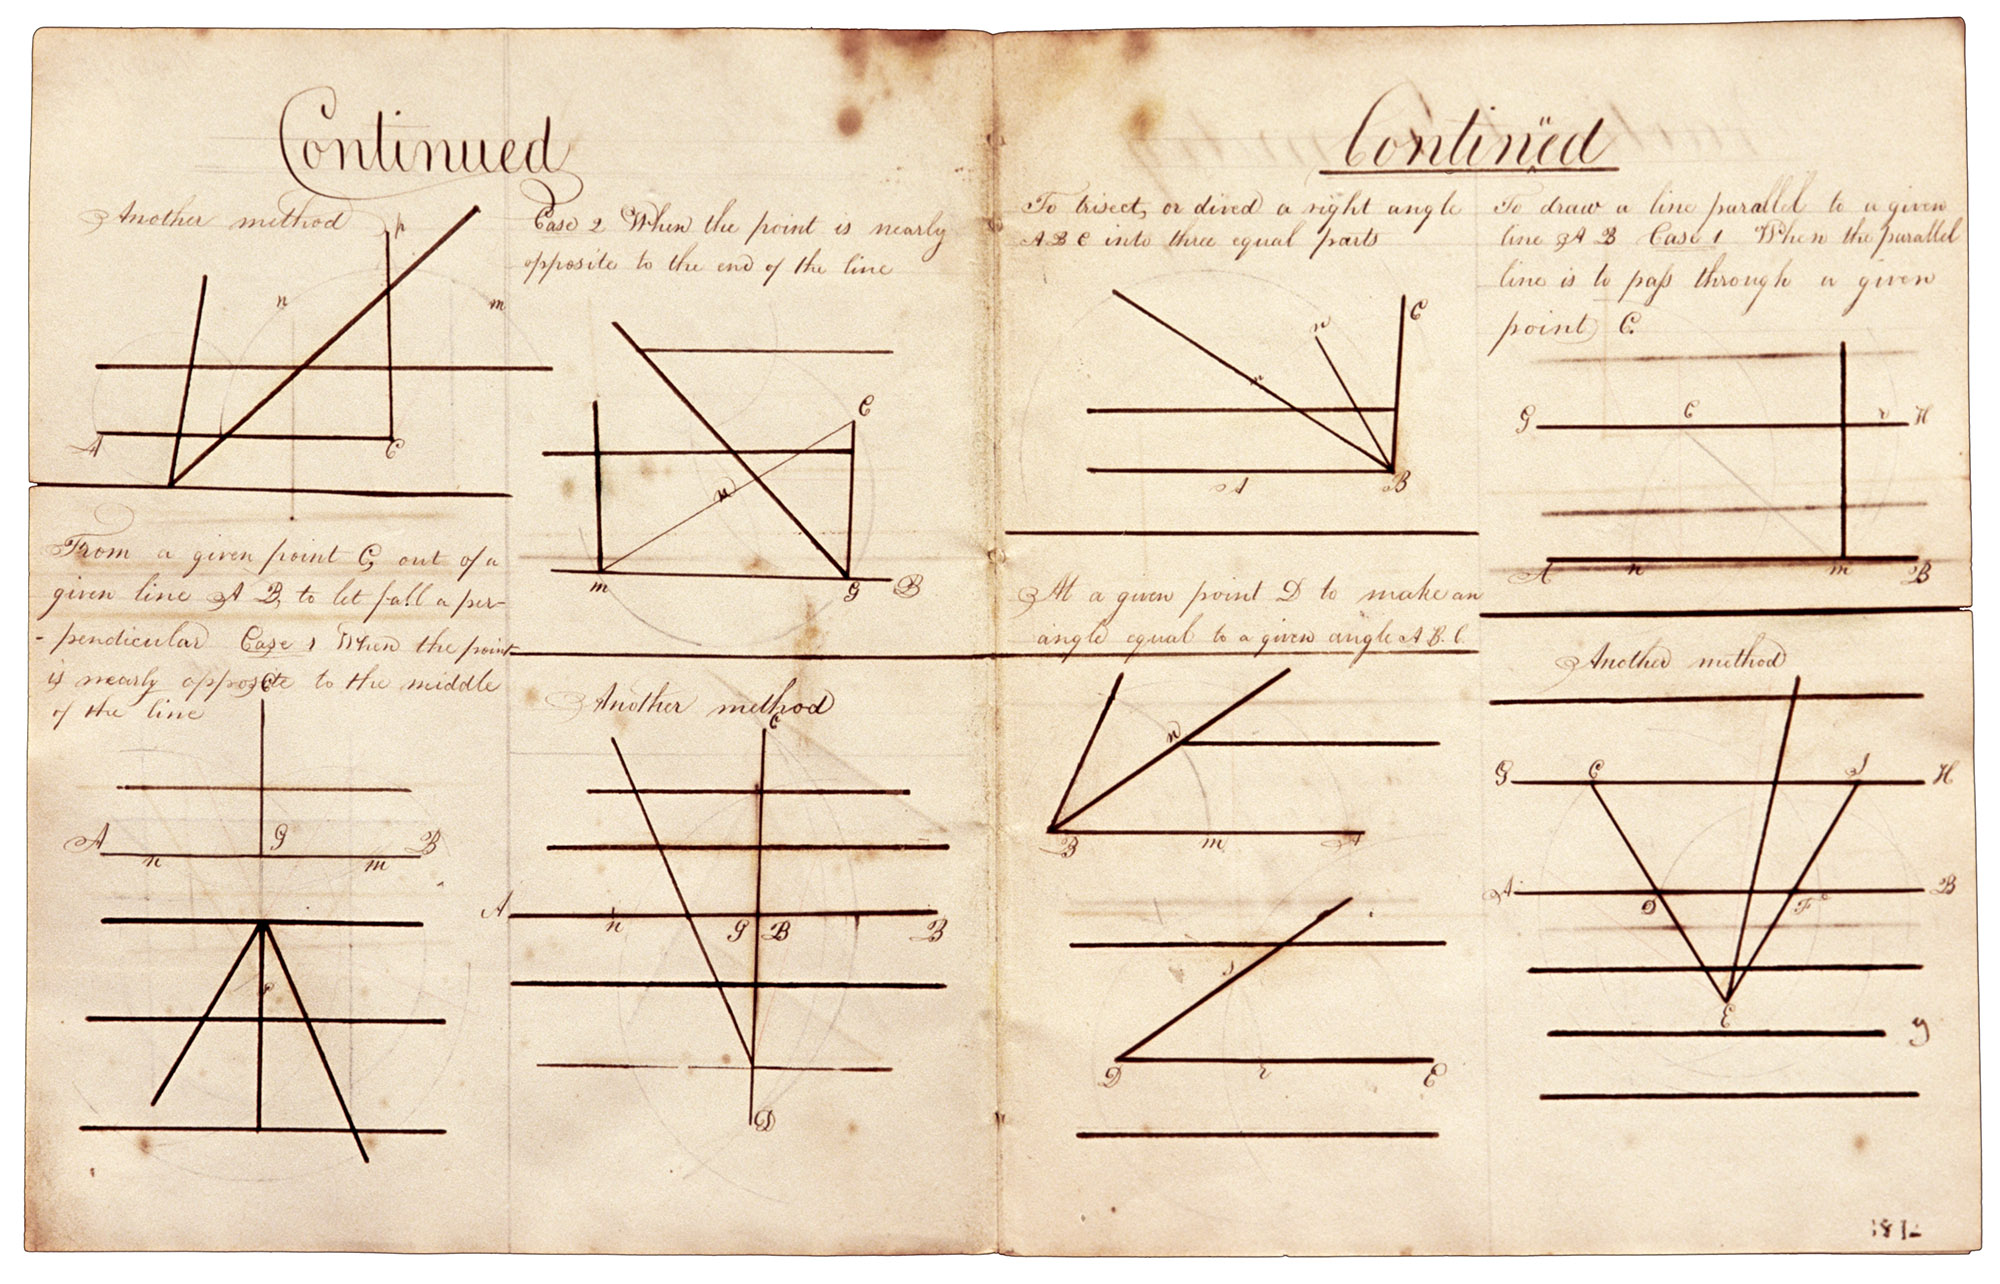 Continued
Another method
p
n
m
A
C
From a given point C, out of a
given line A B, to let fall a per-
- pendicular Case 1 When the point
is nearly opposite to the middle
of the line
C
A
G
B
n
m
r
Case 2 When the point is nearly
opposite to the end of the line
C
n
m
G
B
Another method
C
A
n
G
B
B
D
Continëd
To trisect, or dived a right angle
A B C into three equal parts
C
n
m
A
B
At a given point D to make an
angle equal to a given angle A B. C.
n
B
m
A
s
D
r
E
To draw a line parallel to a given
line A B Case 1 When the parallel
line is to paſs through a given
point C.
G
C
r
H
A
n
m
B
Another method
G
C
I
H
A
D
F
B
E
y